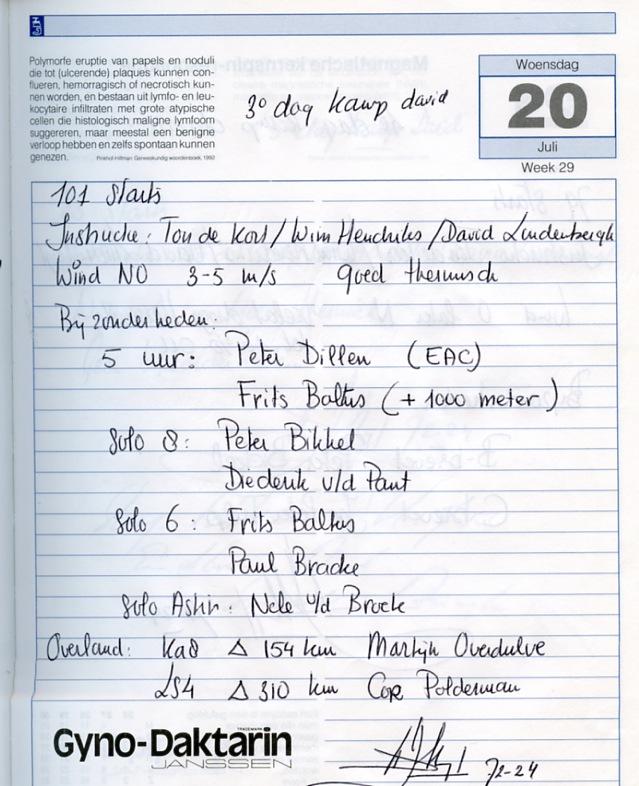 Polymorfe eruptie van papels en noduli
die tot (ulcerende) plaques kunnen con-
flueren, hemorragisch of necrotisch kun-
nen worden, en bestaan uit lymfo- en leu-
kocytaire infiltraten met grote atypische
cellen die histologisch maligne lymfoom
suggereren, maar meestal een benigne
verloop hebben en zelfs spontaan kunnen
genezen.
Pinkhof-Hilfman Geneeskundig woordenboek, 1992
3e dag kamp david
Woensdag
20
Juli
Week 29
101 Starts
Instructie: Ton de Kort / Wim Hendriks / David Lindenbergh
Wind NO 3-5 m/s goed thermisch
Bijzonderheden:
5 uur: Peter Dillen (EAC)
Frits Baltus (+ 1000 meter)
Solo 8: Peter Bikkel
Diederik v/d Pant
Solo 6: Frits Baltus
Paul Bracke
Solo Astir: Nele v/d Broek
Overland: Ka8 Δ 154 km Martijn Overdulve
LS4 Δ 310 km Cor Polderman
TRADEMARK
Gyno-Daktarin
JANSSEN
72-24